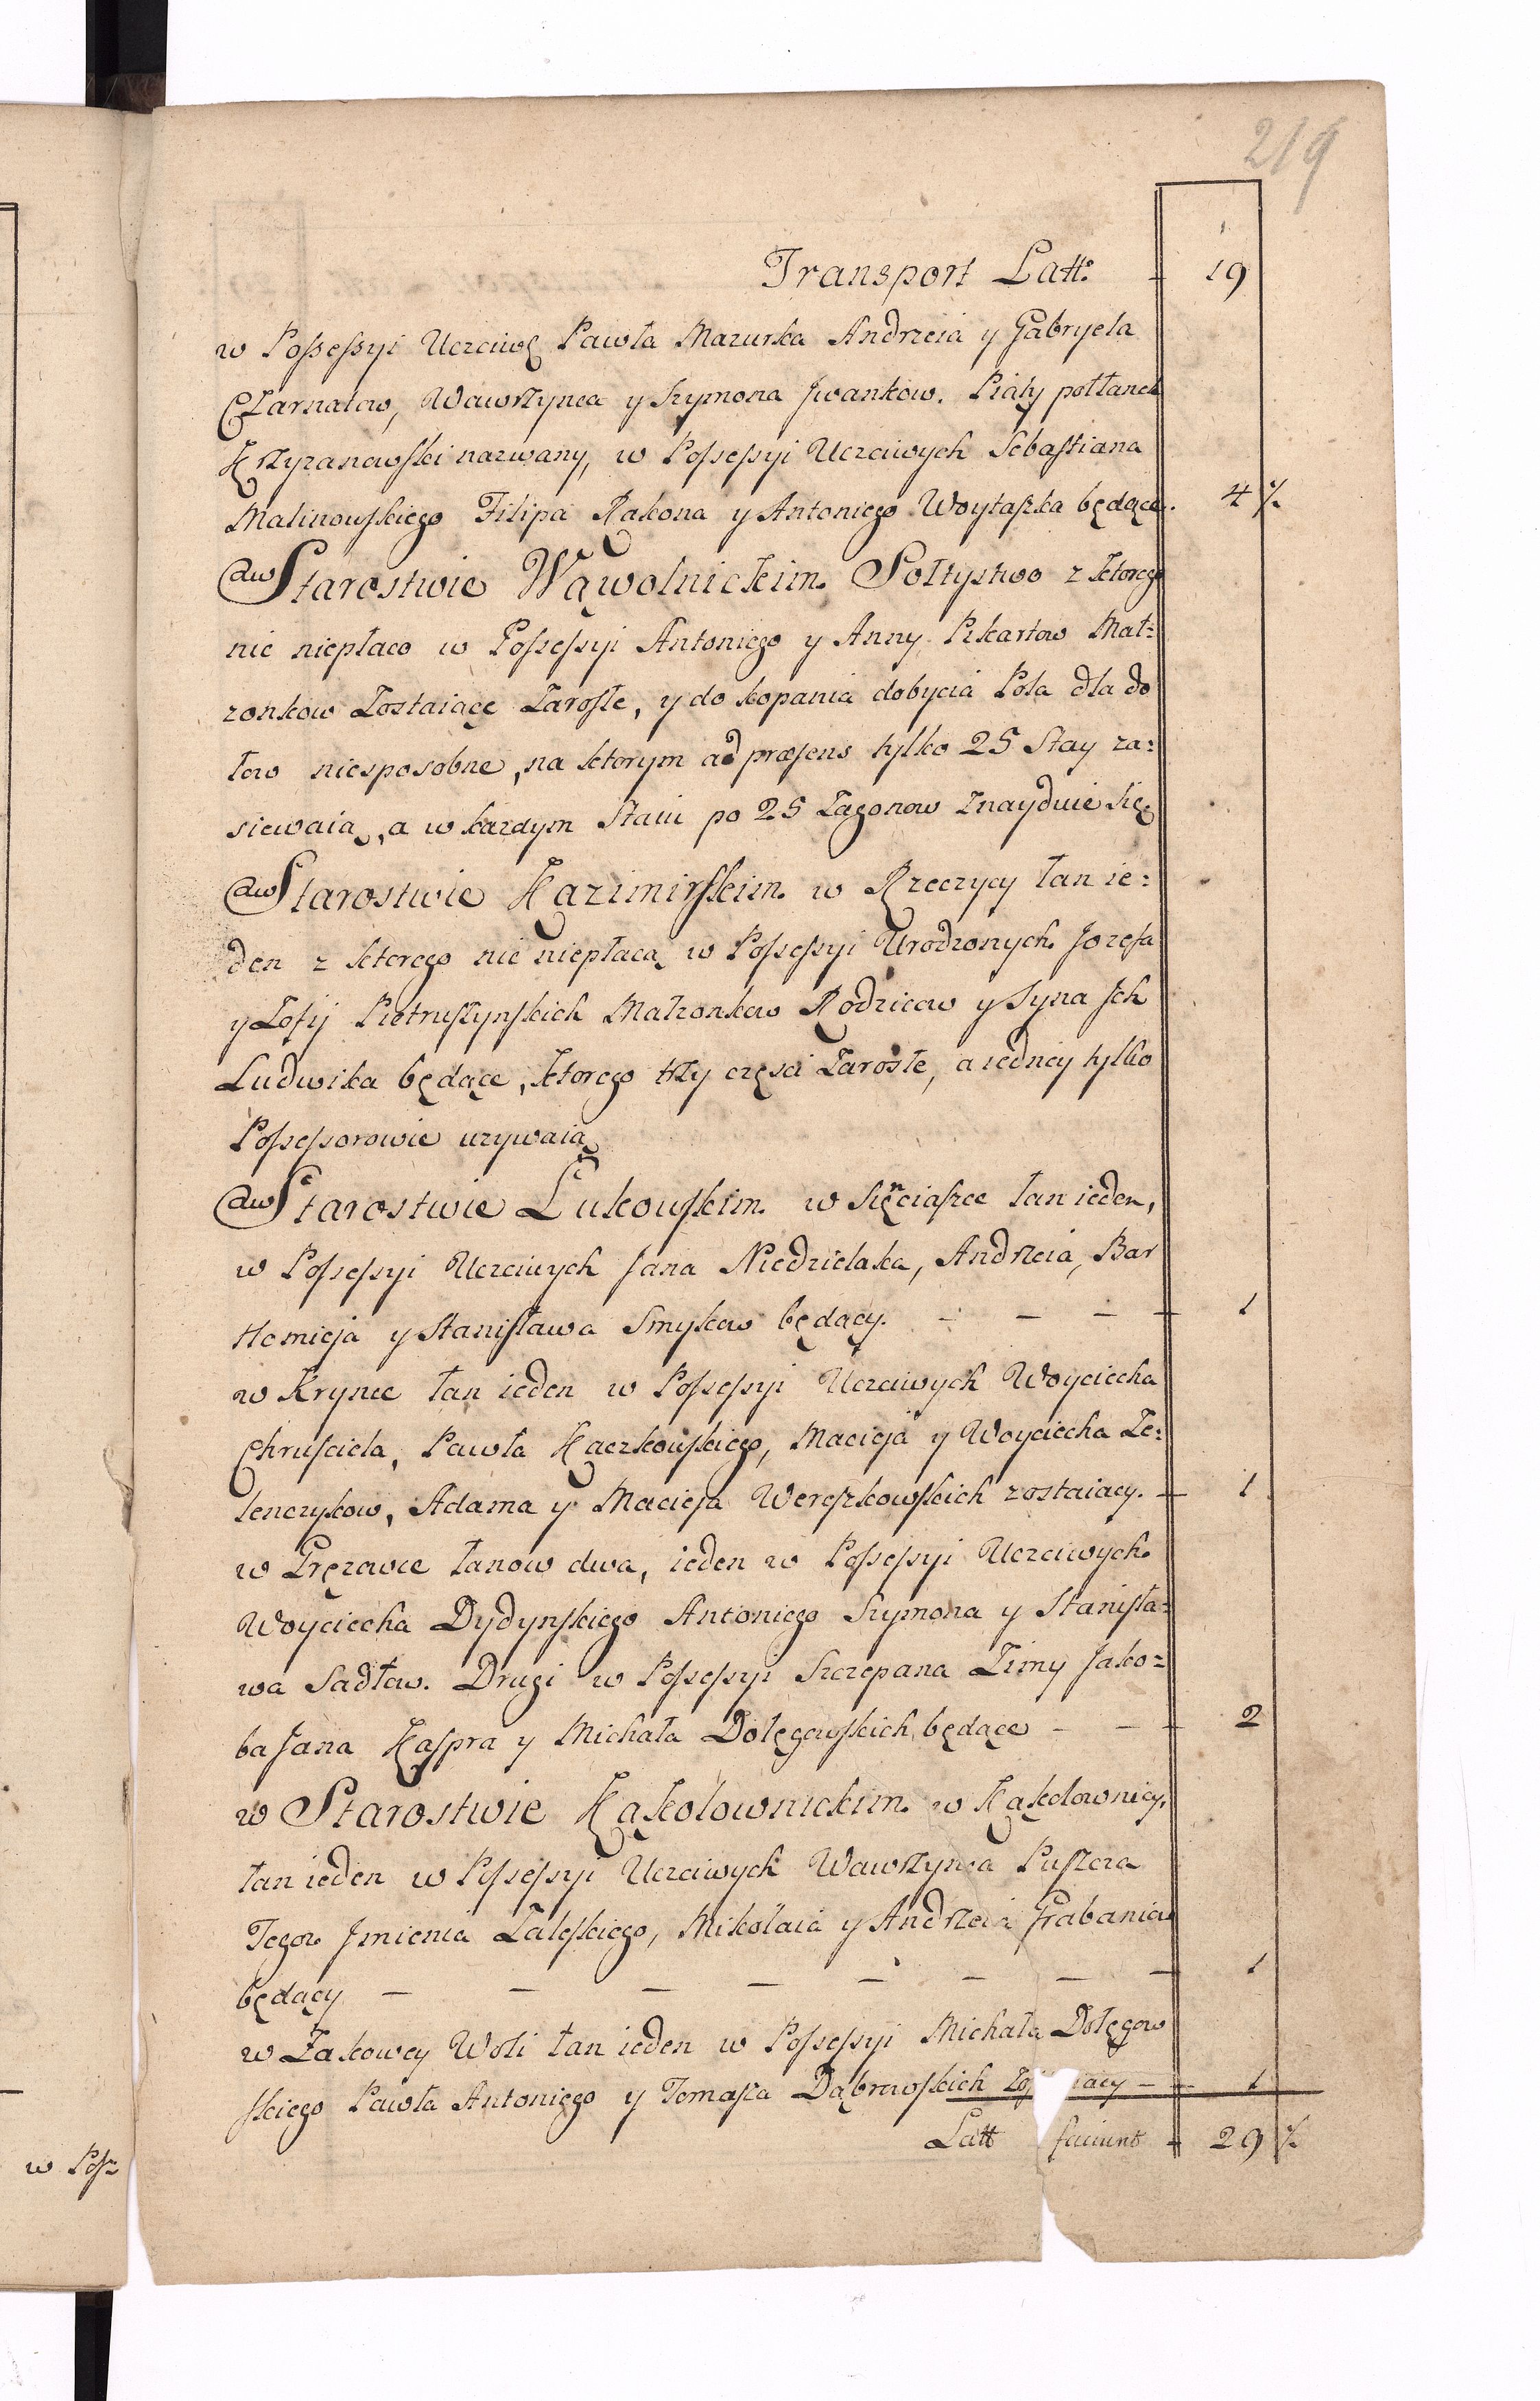 219
Transport Latt: 19
w Possessyi Uczciwẹ Pawła Mazurka Andrzeia y Gabryela
Czarnatow, Wawrzynca y Szymona Jwankow. Piąty połłanek
Krzyzanowski nazwany, w Possessyi Uczciwych Sebastiana
Malinowskiego Filipa Rakona y Antoniego Woytaszka będące. 4 ½
w Starostwie Wąwolnickim. Sołtystwo z ktorego
nic niepłaco w Possessyi Antoniego y Anny Pikartow Mał=
zonkow Zostaiące Zarosłe, y do kopania dobycia Pola dla do
łow niesposobne, na ktorym ad præsens tylko 25 Stay za=
siewaią, a w kazdym Staiu po 25 Zagonow Znayduie się
w Starostwie Kazimirskim. w Rzeczycy łan ie=
den z ktorego nic niepłacą w Possessyi Urodzonych Jozefa
y Zofij Pietruszynskich Małzonkow Rodzicow y Syna Jch
Ludwika będące, ktorego trzy częsci Zarosłe, a iedney tylko
Possessorowie uzywaią
w Starostwie Łukowskim. w Sięnciaszce łan ieden,
w Possessyi Uczciwych Jana Niedzielaka, Andrzeia, Bar
tłomieja y Stanisława Smykow będący. - - - - 1
w Krynce łan ieden w Possessyi Uczciwych Woyciecha
Chrusciela, Pawła Kaczkowskiego, Macieja y Woyciecha Ze=
lenczykow, Adama y Macieja Wereszkowskich zostaiacy. - 1
w Gręzowce łanow dwa, ieden w Possessyi Uczciwych
Woyciecha Dydynskiego Antoniego Szymona y Stanisła=
wa Sadłow. Drugi w Possessyi Szczepana Zimy Jako=
ba Jana Kaspra y Michała Dołęgowskich będące - - - 2
w Starostwie Kąkolownickim. w Kąkolownicy,
łan ieden w Possessyi Uczciwych Wawrzynca Puszcza
Tegoz Jmienia Zaleskiego, Mikołaia y Andrzeia Grabaniow
będący - - - - - - - - 1
w Zakowey Woli łan ieden w Possessyi Michała Dołęgow
skiego Pawła Antoniego y Tomasza Dąbrowskich - - 1
Latt faciunt - 29 ½
w Poss